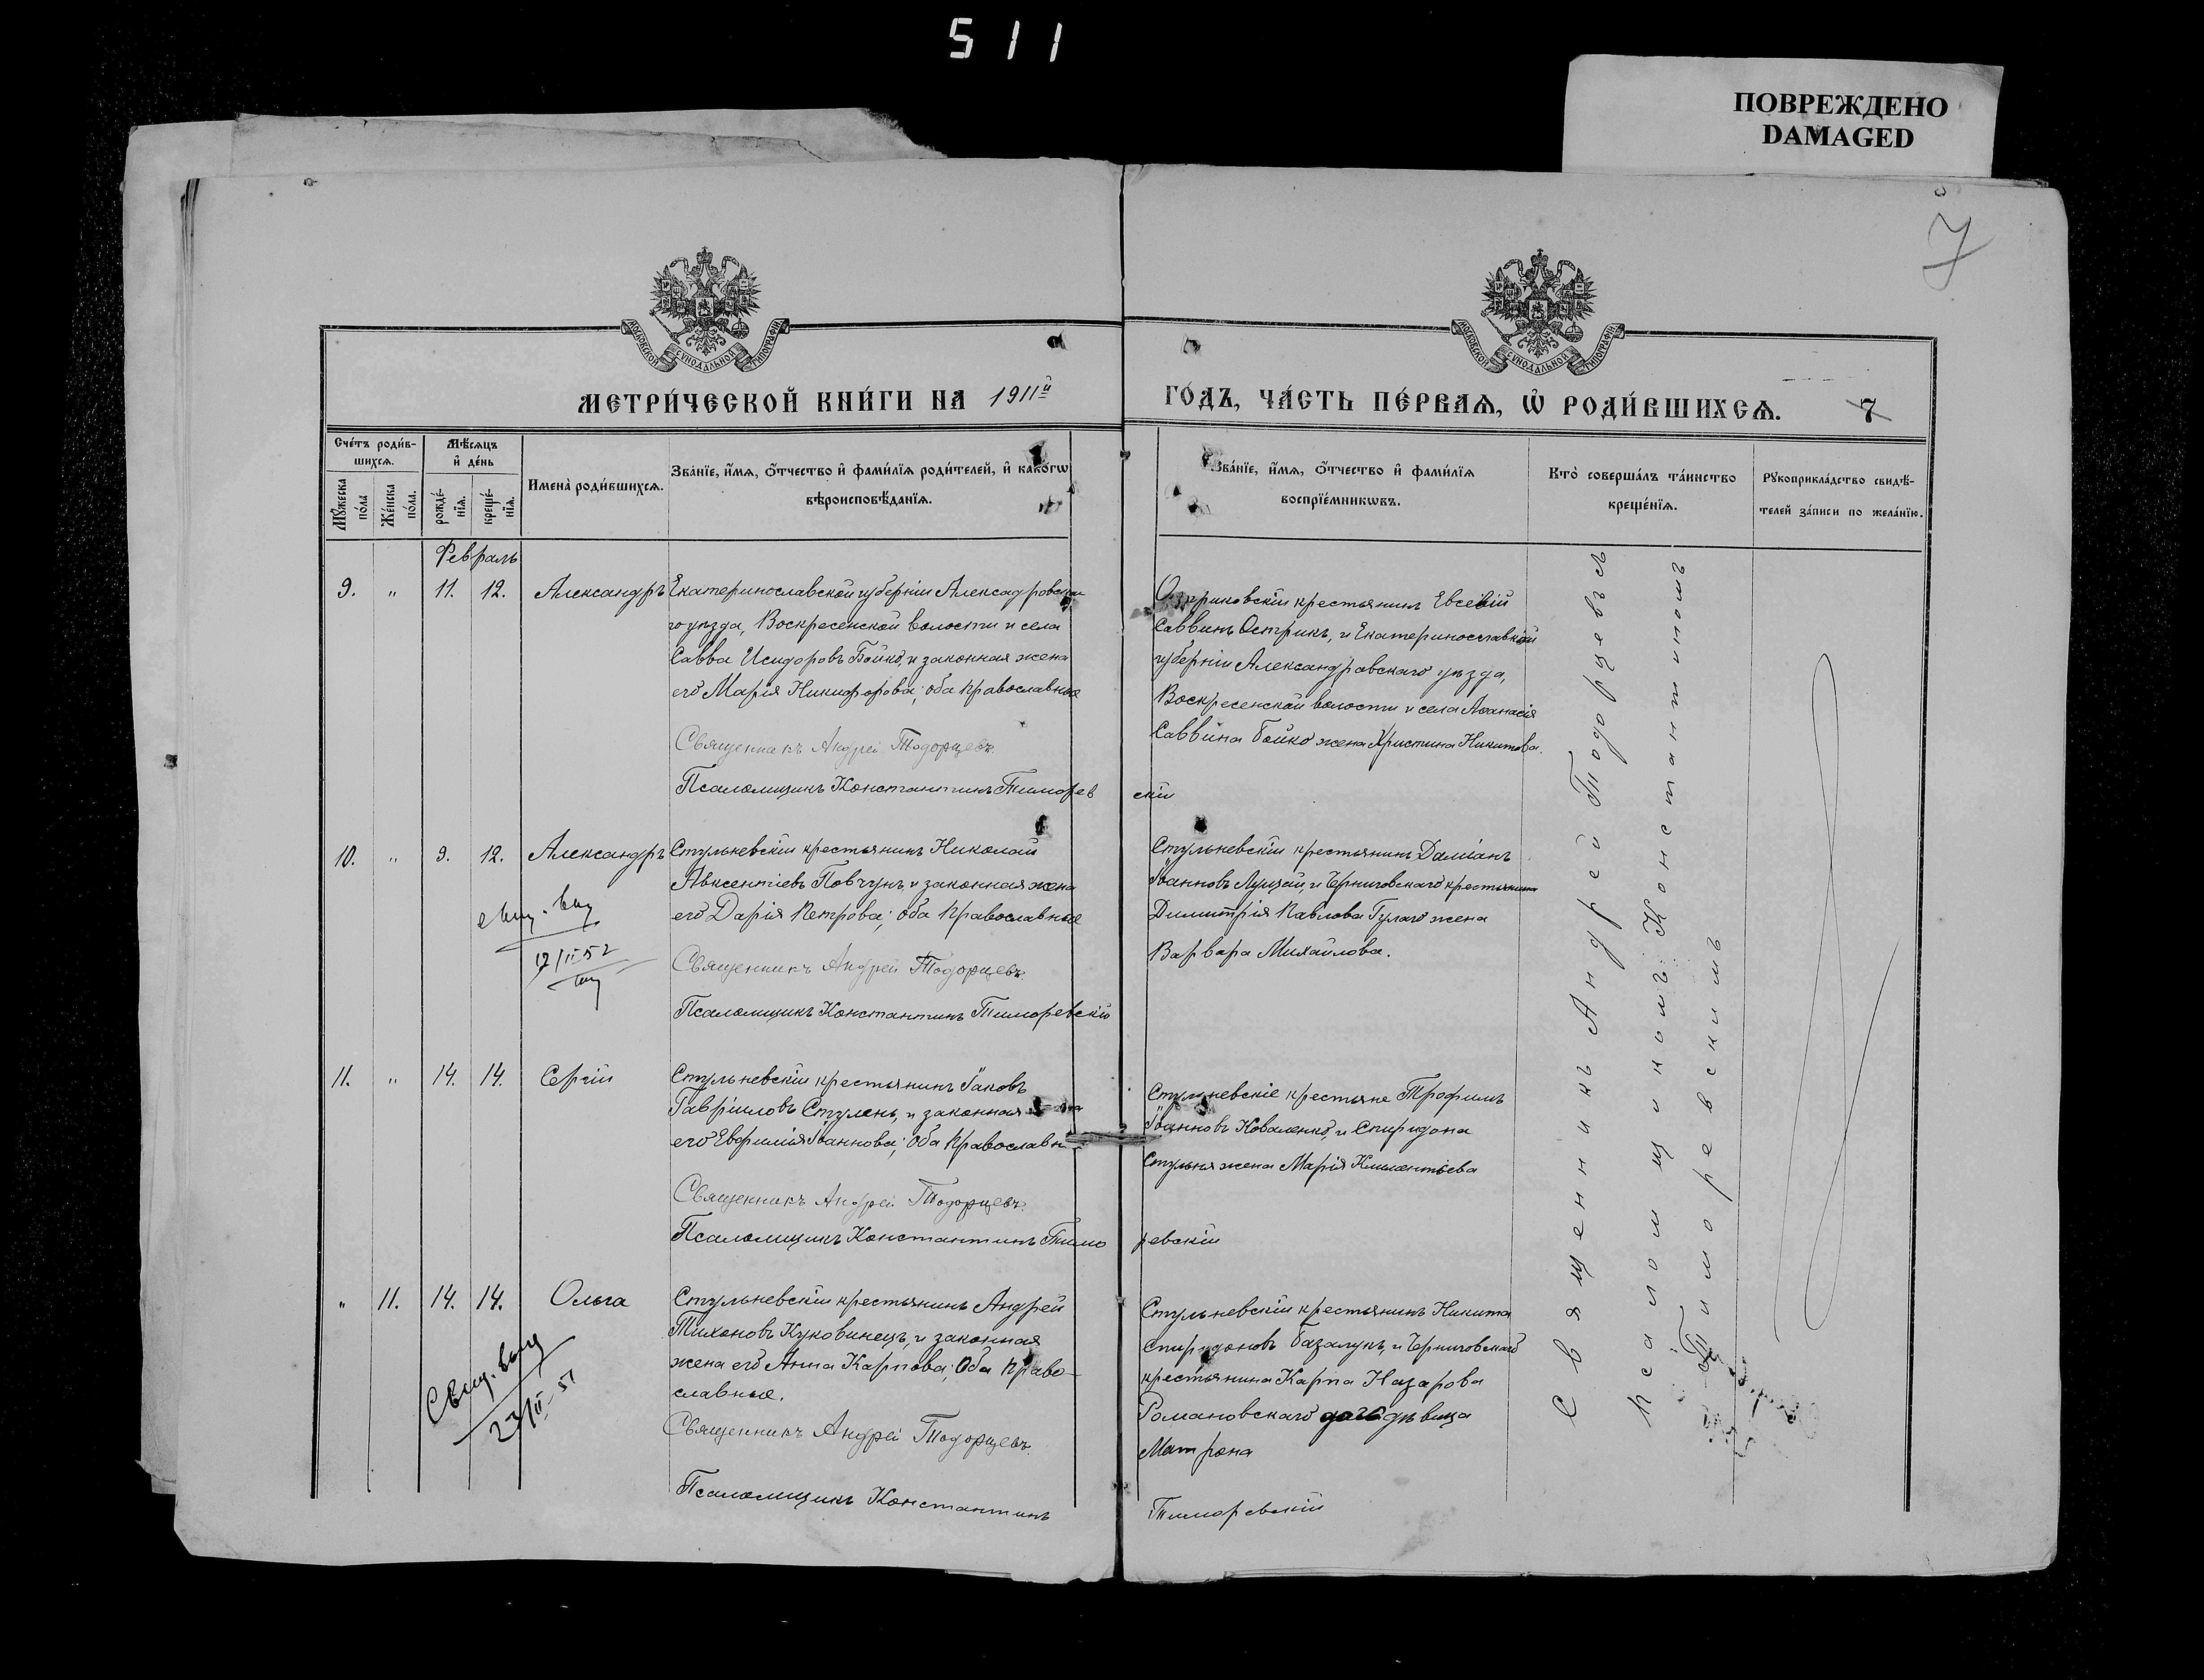 511
ПОВРЕЖДЕНО
DAMAGED
7
МОСКОВСКОЙ СУНОДАЛЬНОЙ ТИПОГРАФІИ
МОСКОВСКОЙ СУНОДАЛЬНОЙ ТИПОГРАФІИ
МЕТРИ́ЧЕСКОЙ КНИ́ГИ НА 1911й
ГО́ДЪ, ЧА́СТЬ ПЕ́РВАѦ, Ѡ҆ РОДИ́ВШИХСѦ.
7
Сче́тъ роди́в-
шихсѧ.
Мꙋ́жеска
по́ла
Же́нска
по́ла.
Мѣ́сѧцъ
и҆ де́нь
рожде́-
нїѧ.
креще́-
нїѧ.
Имена̀ роди́вшихсѧ.
Зва́нїе, и҆́мѧ, ѻ҆́тчество и҆ фами́лїѧ роди́телей, и҆ како́гѡ
вѣроисповѣ́данїѧ.
Зва́нїе, и҆́мѧ, ѻ҆́тчество и҆ фами́лїѧ
воспрїе́мникѡвъ.
Кто̀ соверша́лъ та́инство
креще́нїѧ.
Рꙋкоприкла́дство свидѣ́-
телей за́писи по жела́нїю.
Февраль
9. " 11. 12. Александръ
Екатеринославской губерніи Александровска
го уѣзда, Воскресенской волости и села
Савва Исидоровъ Бойко, и законная жена
его Марія Никифорова; оба православные
Священникъ Андрей Тодорцевъ.
Псаломщикъ Константинъ Тиморев
скій
крестьянинъ Евсевій
Саввинъ Острикъ, и Екатеринославской
губерніи Александровскаго уѣзда,
Воскресенской волости и села Аѳанасія
Саввина Бойко жена Христина Никитова.
10. " 9. 12. Александръ
Стульневскій крестьянинъ Николай
Авксентіевъ Повчунъ, и законная жена
его Дарія Петрова; оба православные
Священникъ Андрей Тодорцевъ.
Псаломщикъ Константинъ Тиморевскій
Стульневскій крестьянинъ Даміанъ
Іоанновъ Луцай, и Черниговскаго крестьянина
Димитрія Павлова Гулаго жена
Варвара Михайлова.
11. " 14. 14. Сергій
Стульневскій крестьянинъ Іаковъ
Гавріиловъ Стулень, и законная
его Евфимія Іоаннова; оба православн
Священникъ Андрей Тодорцевъ.
Псаломщикъ Константинъ Тимо
ревскій
Стульневскіе крестьяне Трофимъ
Іоанновъ Коваленко, и Спиридона
Стульня жена Марія Климентіева
" 11. 14. 14. Ольга
Свид. выд
23/II-51
Стульневскій крестьянинъ Андрей
Тихоновъ Куковинецъ, и законная
жена его Анна Карпова; Оба право-
славные.
Священникъ Андрей Тодорцевъ.
Псаломщикъ Константинъ
Тиморевскій
Стульневскій крестьянинъ Никита
Спиридоновъ Базалукъ, и Черниговскаго
крестьянина Карпа Назарова
Романовскаго дочь дѣвица
Матрона
Священникъ Андрей Тодорцевъ съ
псаломщикомъ Константиномъ
Тиморевскимъ